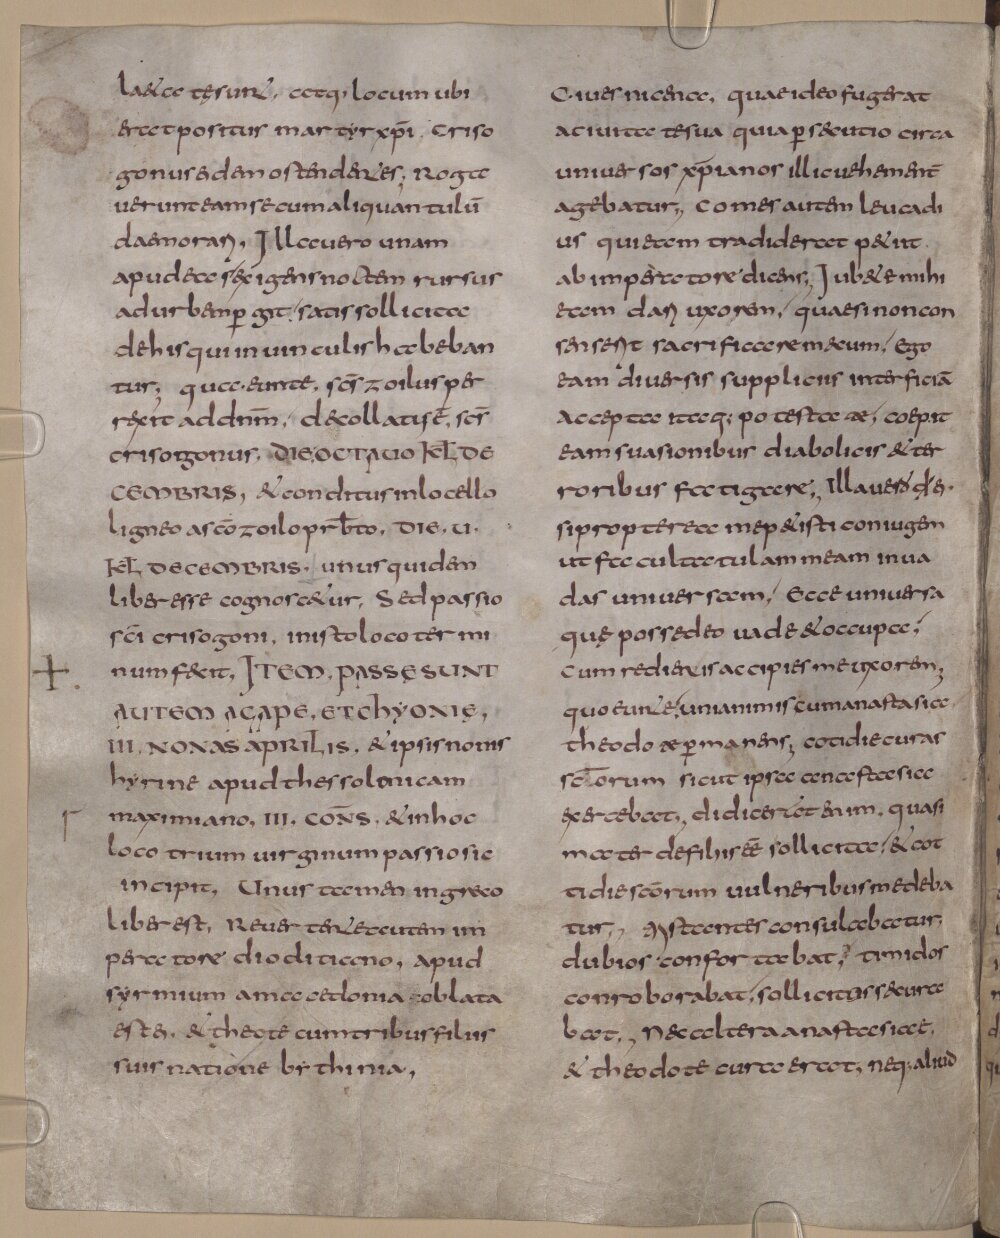 laetatesunt, atq; locum ubi
erat positus martyr xp̄i. Criso
gonus eidem ostenderet; Roga
uerunt eam secum aliquantulū
daemorari, Illa uero unam
apud eas exigens noctem rursus
ad urbem pergit, satis sollicita
de his qui in uinculis habeban
tur; qua eunte, scs̄ zoilus per
rexit ad dnm̄, decollatus ē, scs̄
crisogonus, DIE OCTAUO KL̄ DE
CEMBRIS, & conditus in locello
ligneo a scō zoilo prb̄to, DIE. U.
KL̄ DECEMBRIS, unus quidem
liber esse cognoscitur, Sed passio
scī crisogoni, in isto loco termi
num fecit, ITEM, PASSE SUNT
AUTEM AGAPE, ET ChYONIE,
III, NONAS APRILIS, & ipsis nonis
hyrine apud thessolonicam
maximiano, III, CONS̄, & in hoc
loco trium uirginum passio sic
incipit, Unus tamen in greco
liber est, Reuertere autem im
peratore dioclitiano, apud
syrmium a macedonia oblata
est ei, & theote cum tribus filiis
suis natione bythinia,
Ciues nicena, quae ideo fugerat
a ciuitate sua quia persecutio circa
uniuersos xp̄ianos illic uehement̄
agebatur, Comes autem leucadi
us qui etiam tradiderat petiit
ab imperatore dicens, Iubete mihi
eam dari uxorem, quae si non con
senserit sacrificare mecum, Ego
eam diuersis suppliciis interficiā
Accepta itaq; potestate, coepit
eam suasionibus diabolicis & ter
roribus fatigare, Illa uero dix.
si propterea me petisti coniugem
ut facultatulam meam inua
das uniuersam, Ecce uniuersa
que possedeo uade & occupa,
Cum redieris accipies me uxorem,
quo eunte, unianimis cum anastasia
theodote permanens, cotidie curas
sc̄torum sicut ipsa anastasia
exercebat, didicerat enim, quasi
mater de filiis eē sollicita, & cot
tidie scōrum uulneribus medeba
tur, Mastantes consulabatur,
dubios confortabat, timidos
conroborabat, sollicitas secura
bat, Nec altera anastasiae,
& theodote cura erat, neq; aliud